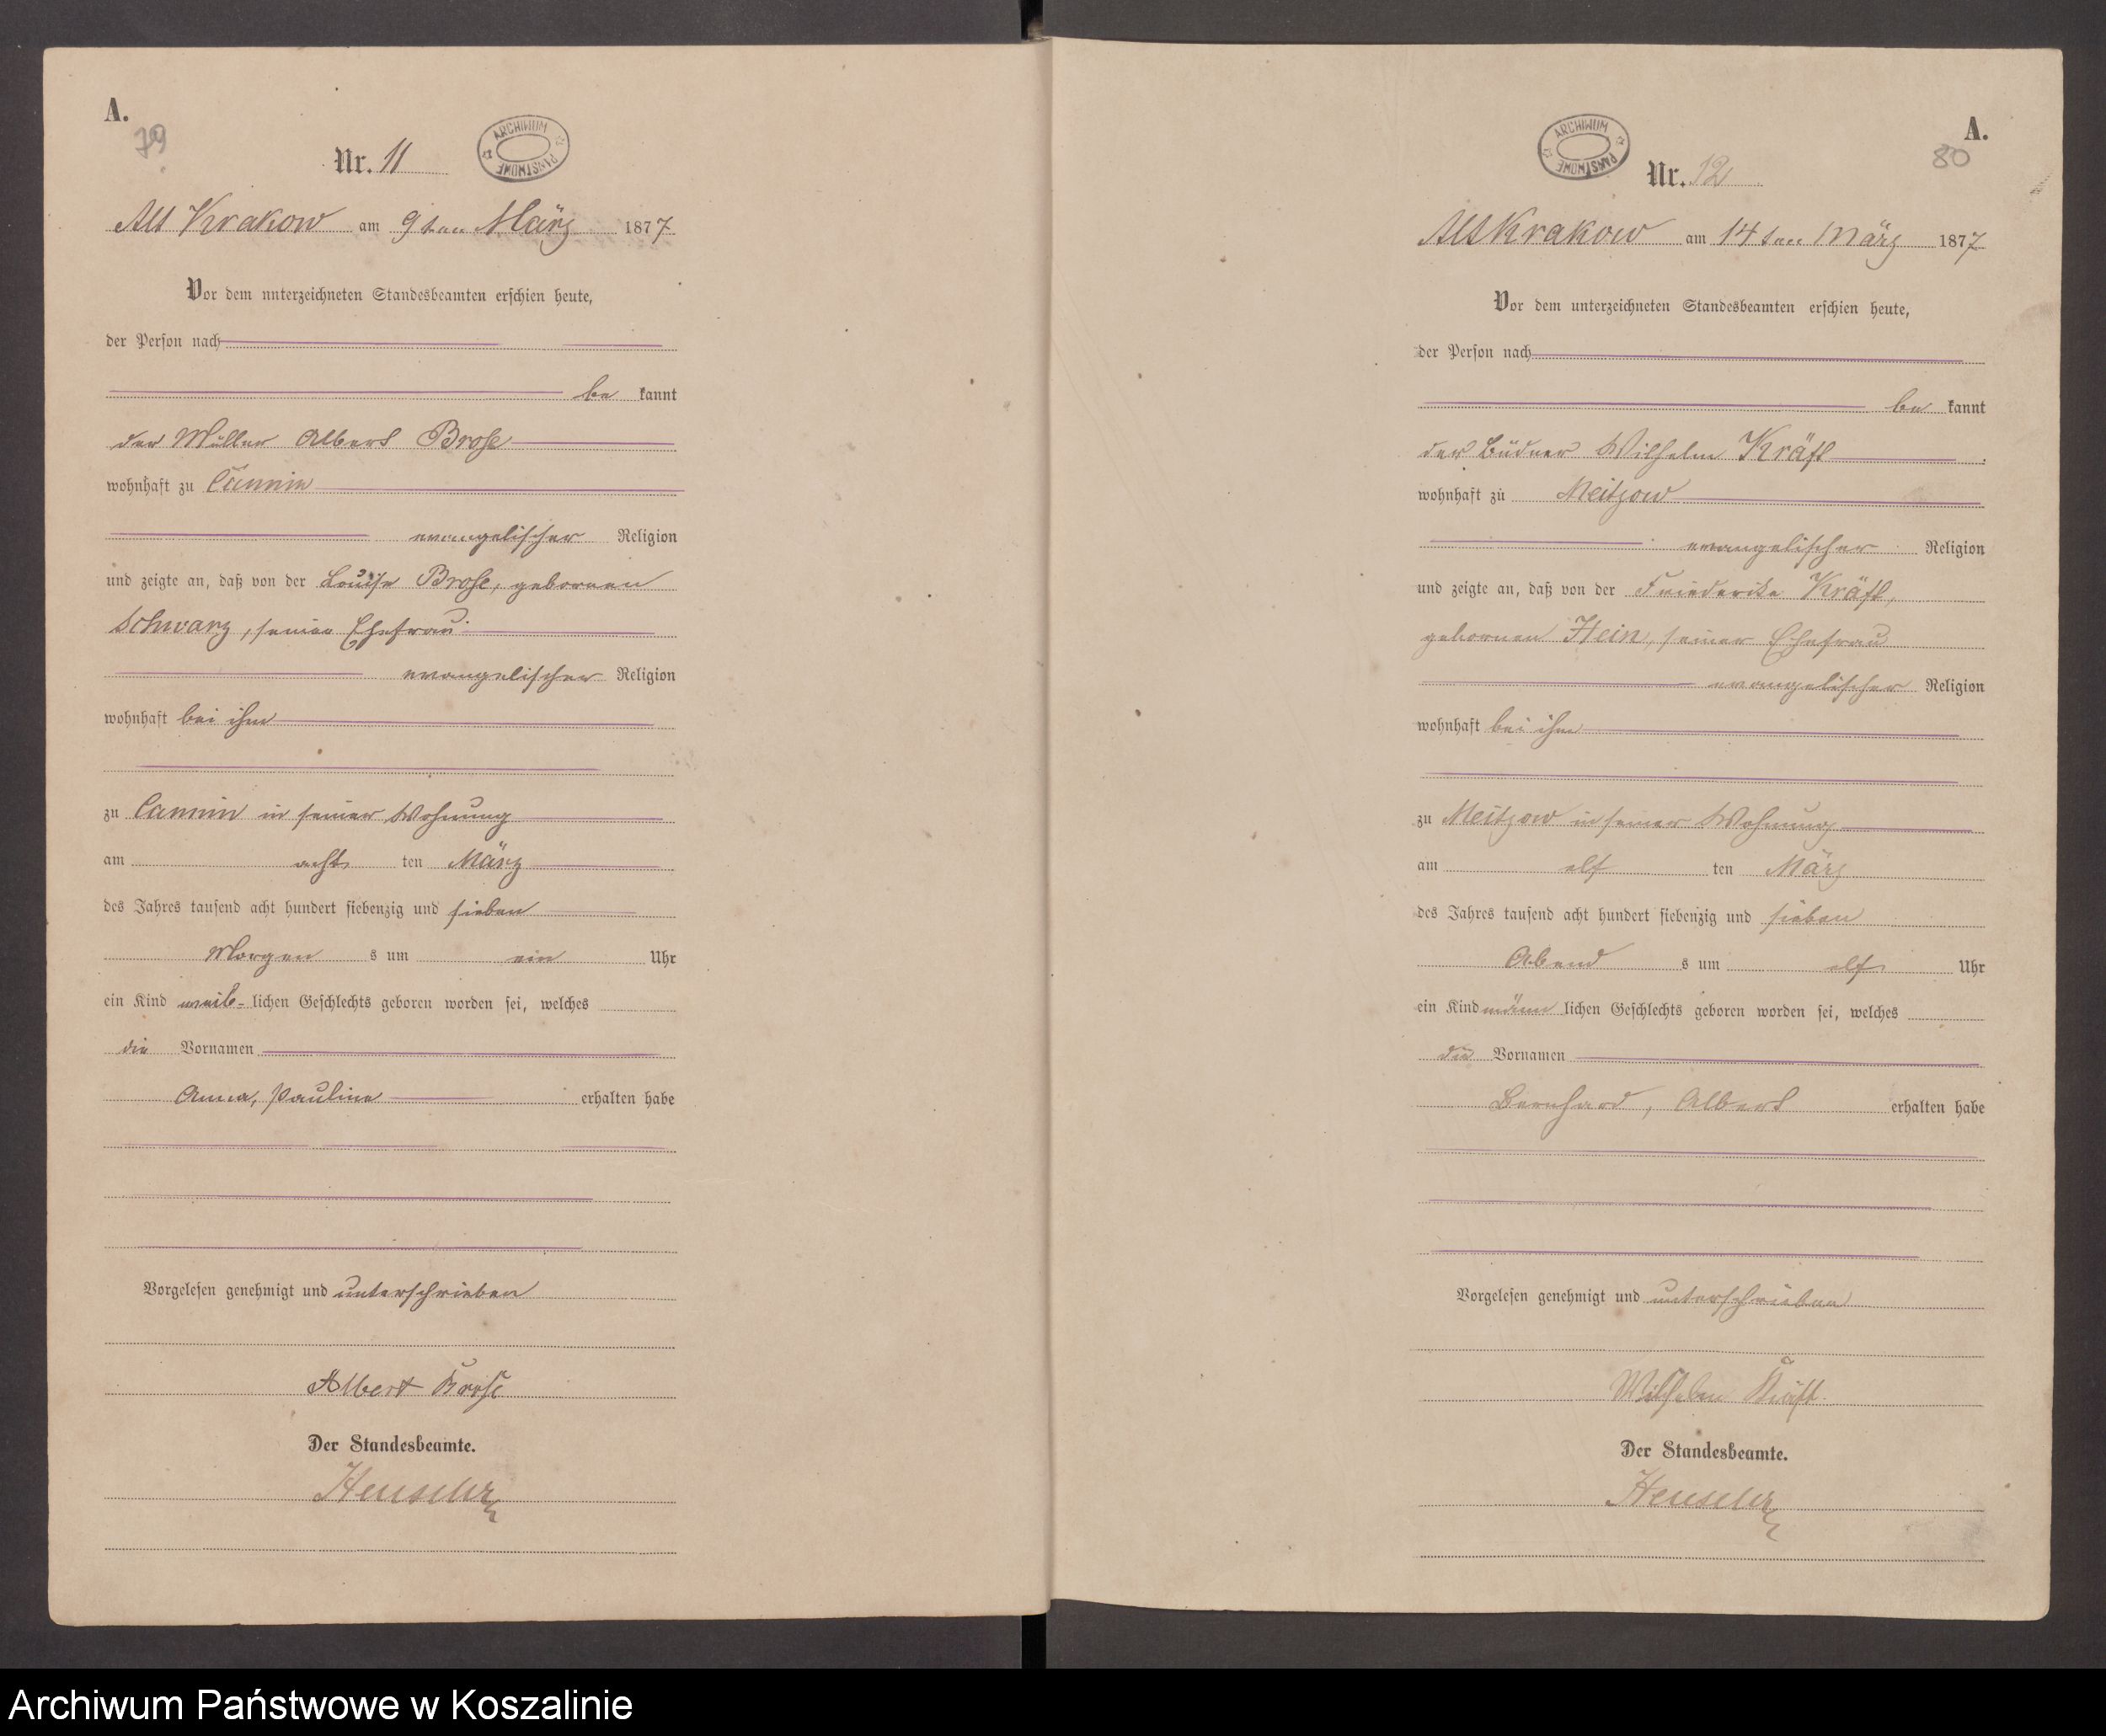 A.
79
Nr. 11
ARCHIWUM PAŃSTWOWE
Alt Krakow am 9ten März 1877
Vor dem unterzeichneten Standesbeamten erschien heute,
der Person nach
be kannt
der Müller Albert Brose
wohnhaft zu Cannin
evangelischer Religion
und zeigte an, daß von der Louise Brose, gebornen
Schwarz, seiner Ehefrau
evangelischer Religion
wohnhaft bei ihm
zu Cannin in seiner Wohnung
am acht ten März
des Jahres tausend acht hundert siebenzig und sieben
Morgen s um ein Uhr
ein Kind weib- lichen Geschlechts geboren worden sei, welches
die Vornamen
Anna, Pauline erhalten habe
Vorgelesen genehmigt und unterschrieben
Albert Brose
Der Standesbeamte.
A.
80
ARCHIWUM PAŃSTWOWE
Nr. 12
Alt Krakow am 14ten März 1877
Vor dem unterzeichneten Standesbeamten erschien heute,
der Person nach
be kannt
der Büdner Wilhelm Kräft
wohnhaft zu Meitzow
evangelischer Religion
und zeigte an, daß von der Friederike Kräft,
gebornen Hein, seiner Ehefrau
evangelischer Religion
wohnhaft bei ihm
zu Meitzow in seiner Wohnung
am elf ten März
des Jahres tausend acht hundert siebenzig und sieben
Abend s um elf Uhr
ein Kind männ lichen Geschlechts geboren worden sei, welches
die Vornamen
Bernhard, Albert erhalten habe
Vorgelesen genehmigt und unterschrieben
Wilhelm Kräft
Der Standesbeamte.
Archiwum Państwowe w Koszalinie